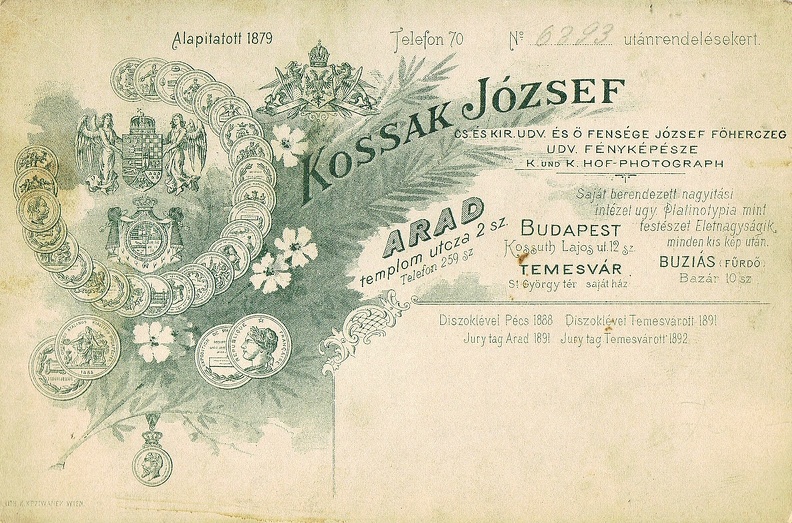 Alapitatott 1879
Telefon 70
Nº 6393 utánrendelésekert.
KOSSAK JÓZSEF
CS. ÉS KIR. UDV. ÉS Ő FENSÉGE JÓZSEF FŐHERCZEG
UDV. FÉNYKÉPÉSZE
K. UND K. HOF-PHOTOGRAPH
ARAD
templom utcza 2 sz.
Telefon 259 sz
BUDAPEST
Kossuth Lajos ut. 12 sz.
TEMESVÁR
Sᵗ György tér saját ház
Saját berendezett nagyitási
intézet ugy. Platinotypia mint
festészet Eletnagyságik
minden kis kép után.
BUZIÁS (FÜRDŐ)
Bazár 10 sz
Diszoklével Pécs 1888 Diszoklével Temesvárott 1891
Jury tag Arad 1891 Jury tag Temesvárott 1892.